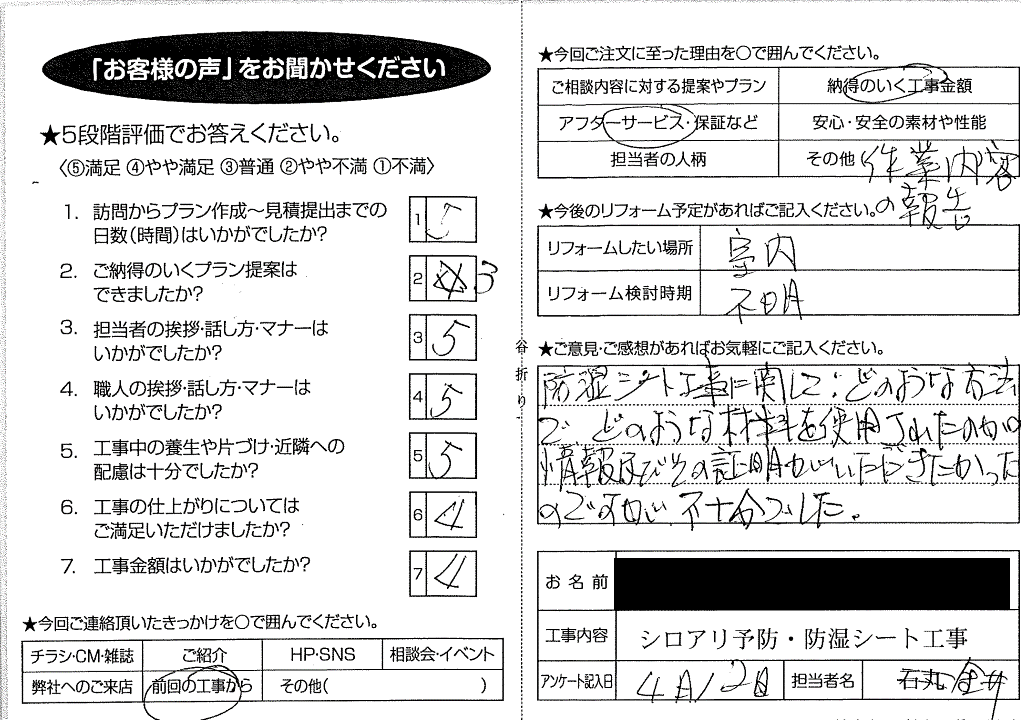 「お客様の声」をお聞かせください
★5段階評価でお答えください。
〈⑤満足 ④やや満足 ③普通 ②やや不満 ①不満〉
1. 訪問からプラン作成〜見積提出までの
日数(時間)はいかがでしたか?
1 5
2. ご納得のいくプラン提案は
できましたか?
2 3
3. 担当者の挨拶・話し方・マナーは
いかがでしたか?
3 5
4. 職人の挨拶・話し方・マナーは
いかがでしたか?
4 5
5. 工事中の養生や片づけ・近隣への
配慮は十分でしたか?
5 5
6. 工事の仕上がりについては
ご満足いただけましたか?
6 4
7. 工事金額はいかがでしたか?
7 4
★今回ご連絡頂いたきっかけを〇で囲んでください。
チラシ・CM・雑誌 ご紹介 HP・SNS 相談会・イベント
弊社へのご来店 前回の工事から その他( )
谷折り
★今回ご注文に至った理由を〇で囲んでください。
ご相談内容に対する提案やプラン 納得のいく工事金額
アフターサービス・保証など 安心・安全の素材や性能
担当者の人柄 その他 作業内容
の報告
★今後のリフォーム予定があればご記入ください。
リフォームしたい場所 室内
リフォーム検討時期 不明
★ご意見・ご感想があればお気軽にご記入ください。
防湿シート工事に関して:どのような方法
で、どのような材料を使用されたのかの
情報及びその証明がいただきたかった
のですが、不十分でした。
お名前
工事内容 シロアリ予防・防湿シート工事
アンケート記入日 4月12日 担当者名 石丸 金井